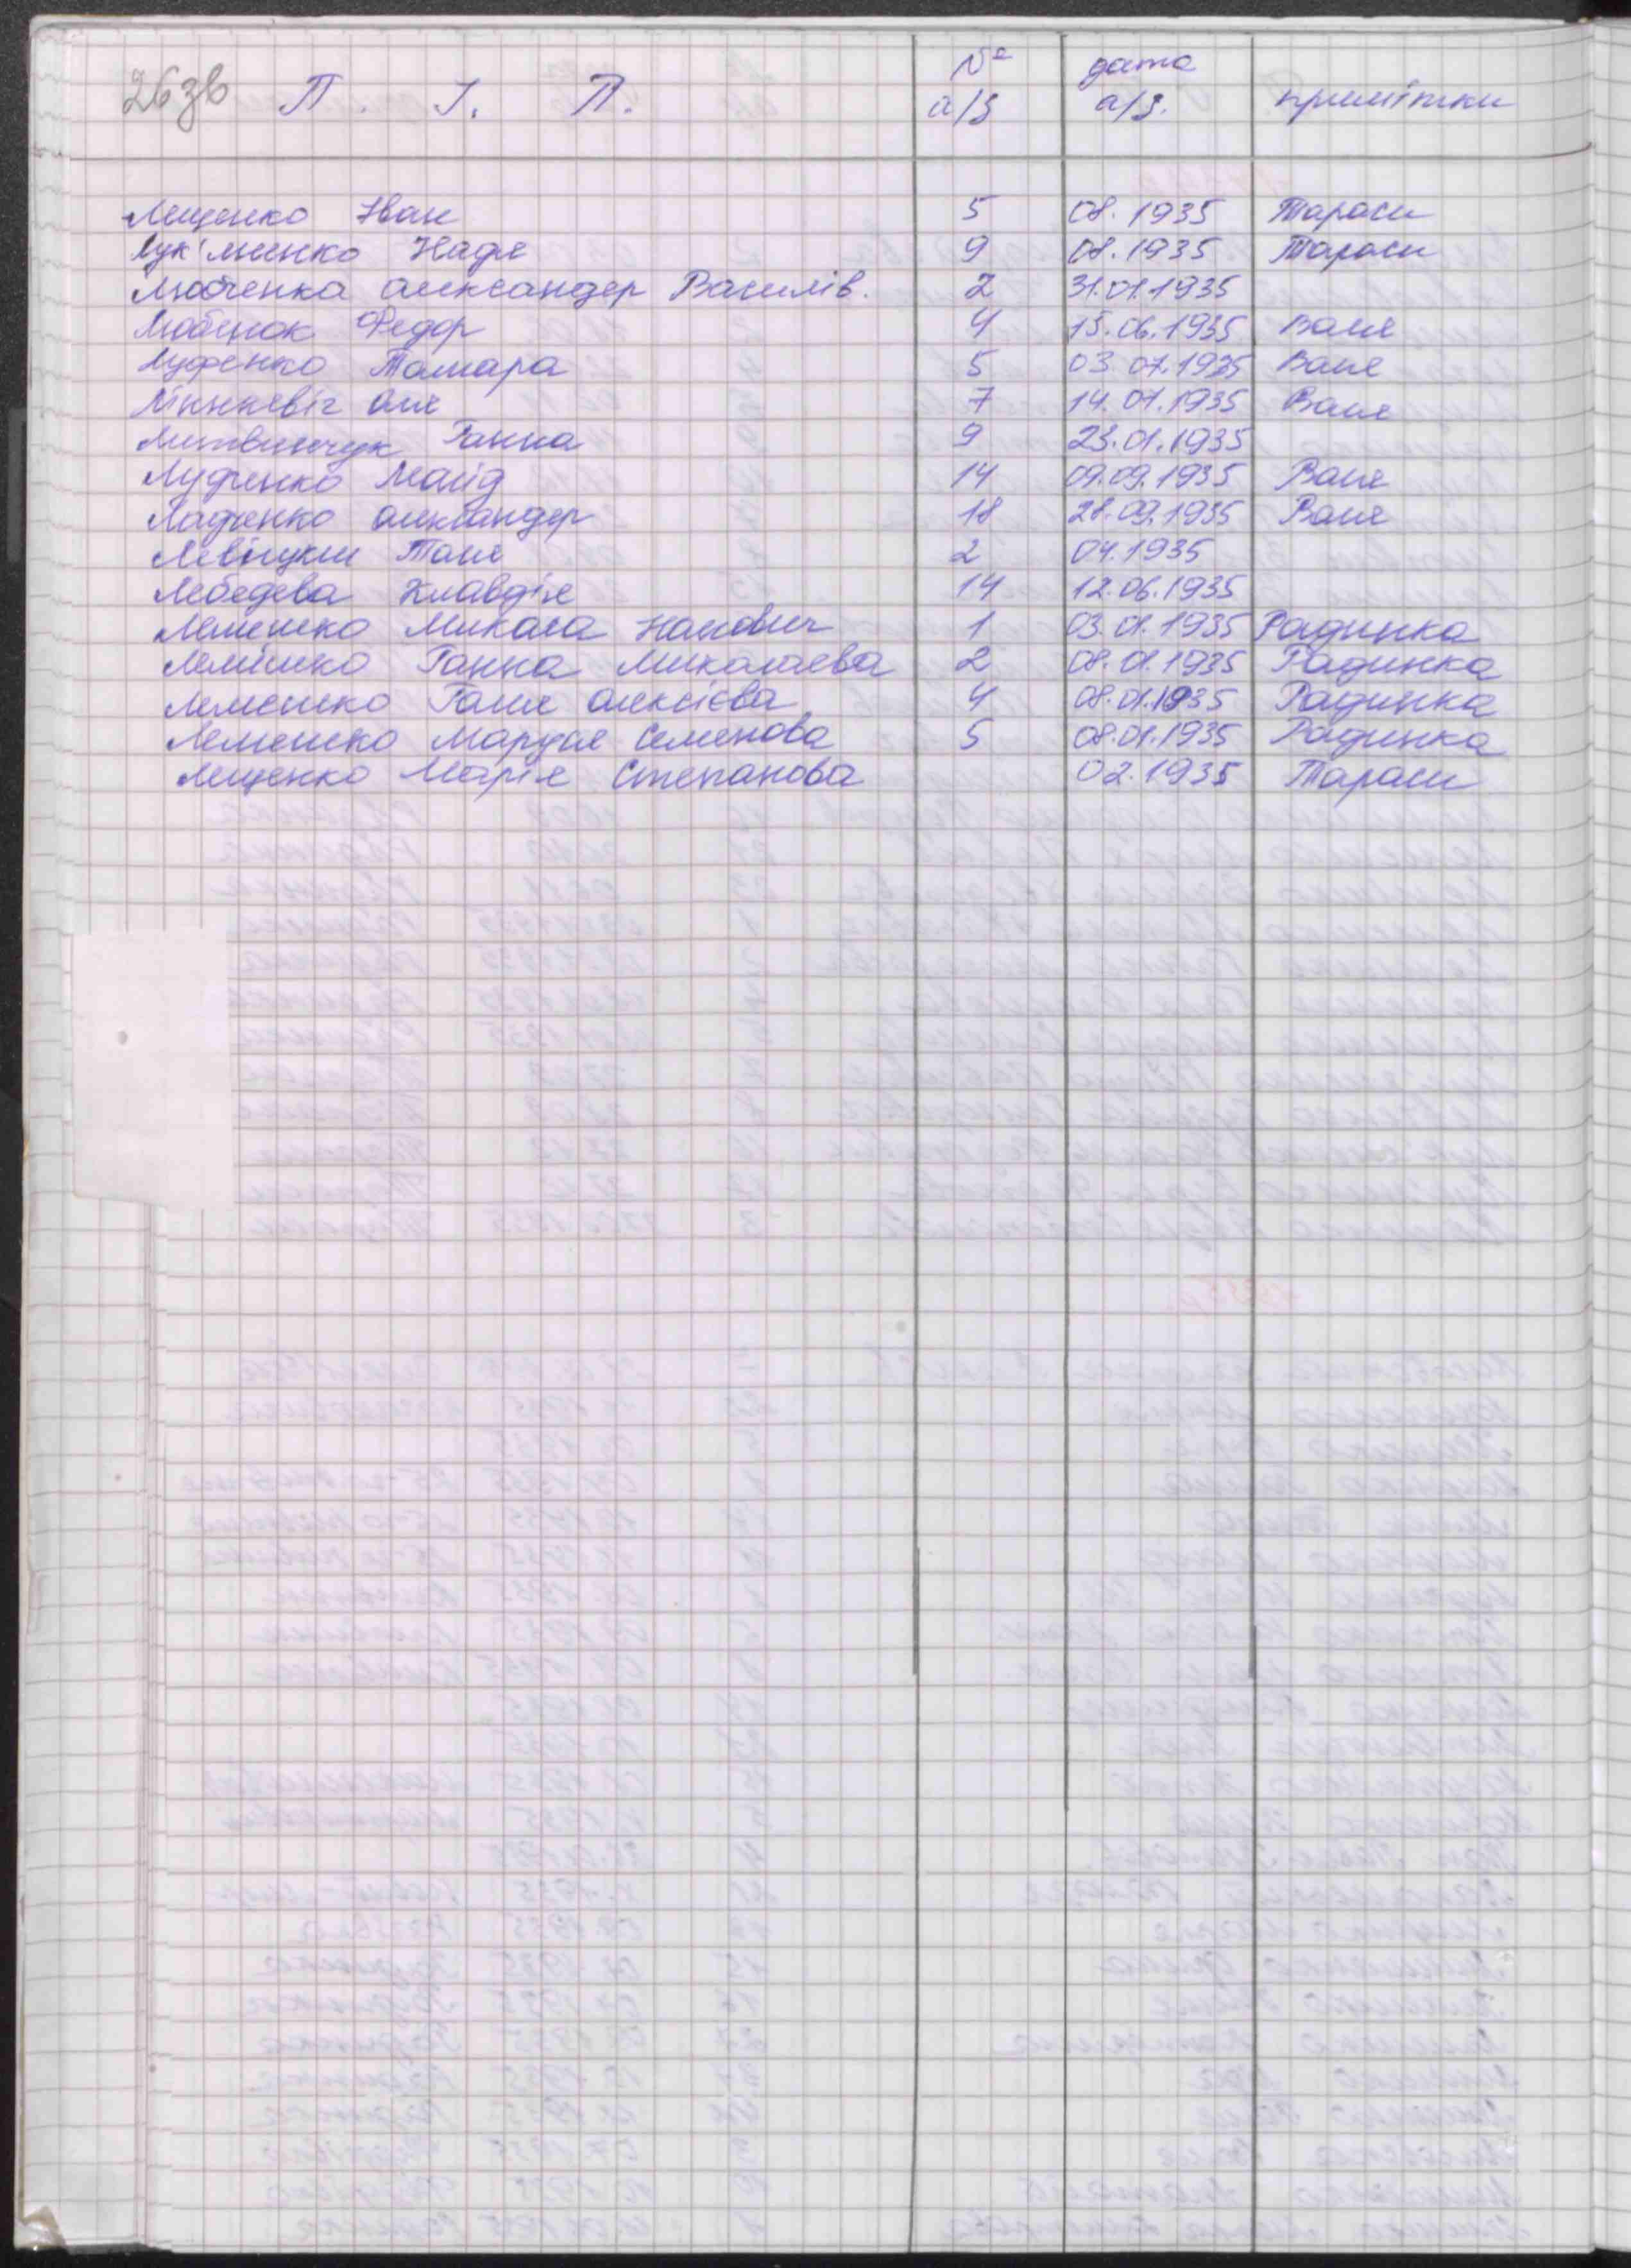 263в П. І. П. № а/з дата а/з. примітки
Лещенко Іван 5 08.1935 Тараси
Лук'яненко Надя 9 08.1935 Тараси
Любченка Олександер Василів. 2 31.01.1935
Любенок Федор 4 15.06.1935 Валя
Луценко Тамара 5 03.07.1935 Валя
Лінкевіч Оля 7 14.07.1935 Валя
Литвинчук Ганна 9 23.01.1935
14 09.09.1935 Валя
Ладченко Олександер 18 28.09.1935 Валя
Левіцкий Таня 2 04.1935
Лебедєва Клавдія 14 12.06.1935
Лемешко Микола 1 03.01.1935 Радинка
Лемешко Ганна Миколаєва 2 08.01.1935 Радинка
Лемешко Галя Олексієва 4 08.01.1935 Радинка
Лемешко Маруся Семенова 5 08.01.1935 Радинка
Лещенко Марія Степанова 02.1935 Тараси